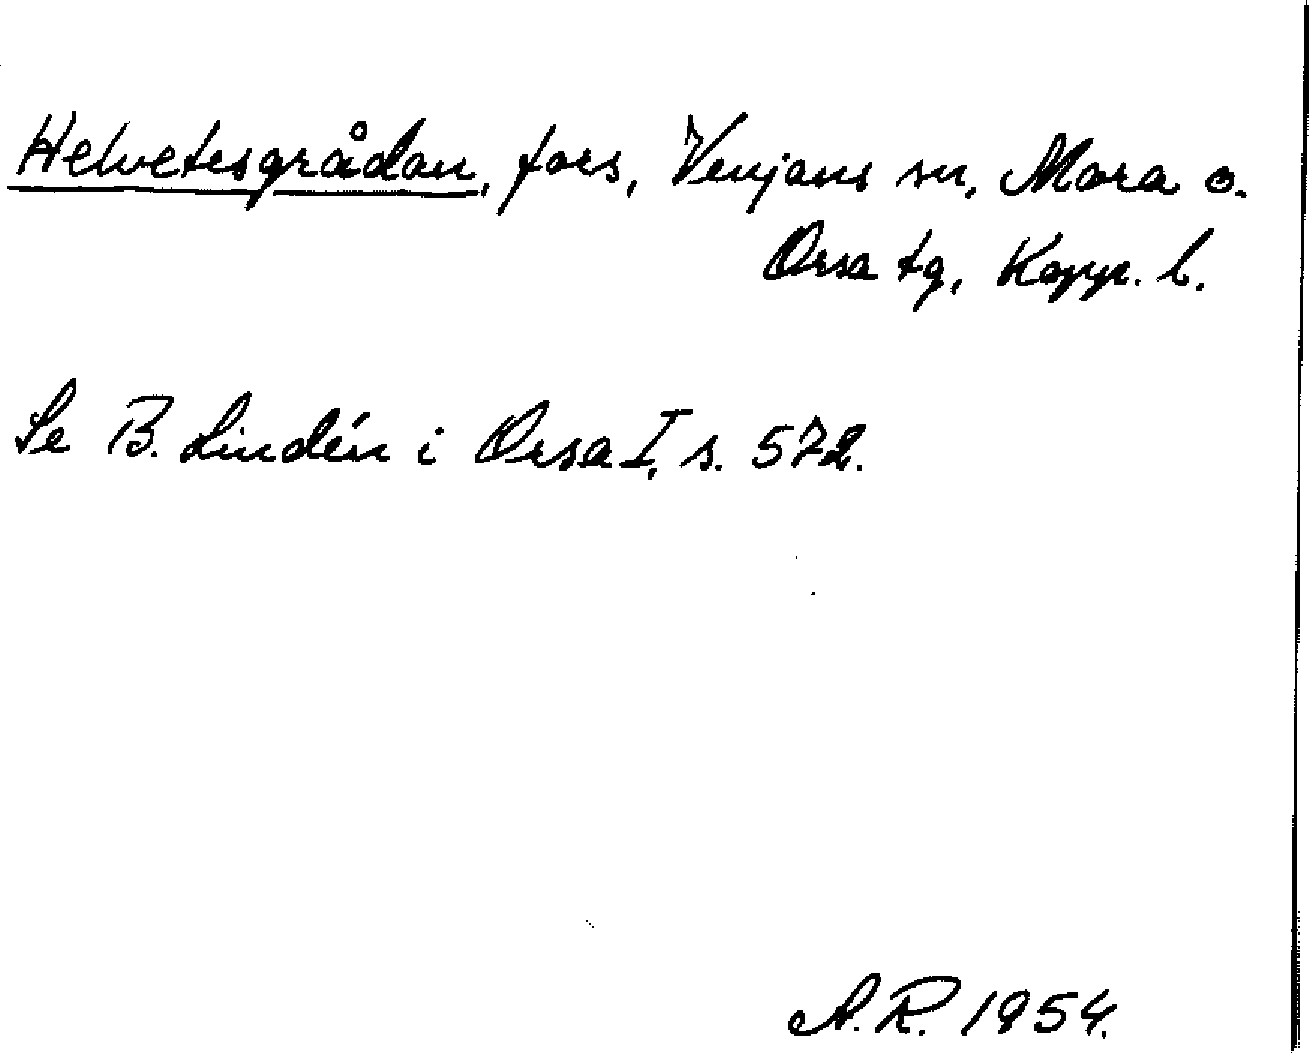 Helvetesgrådan, fors, Venjans sn, Mora o.
Orsa tg, Kopp. l.
Se B. Lindén i Orsa I, s. 572.
A.R. 1954.